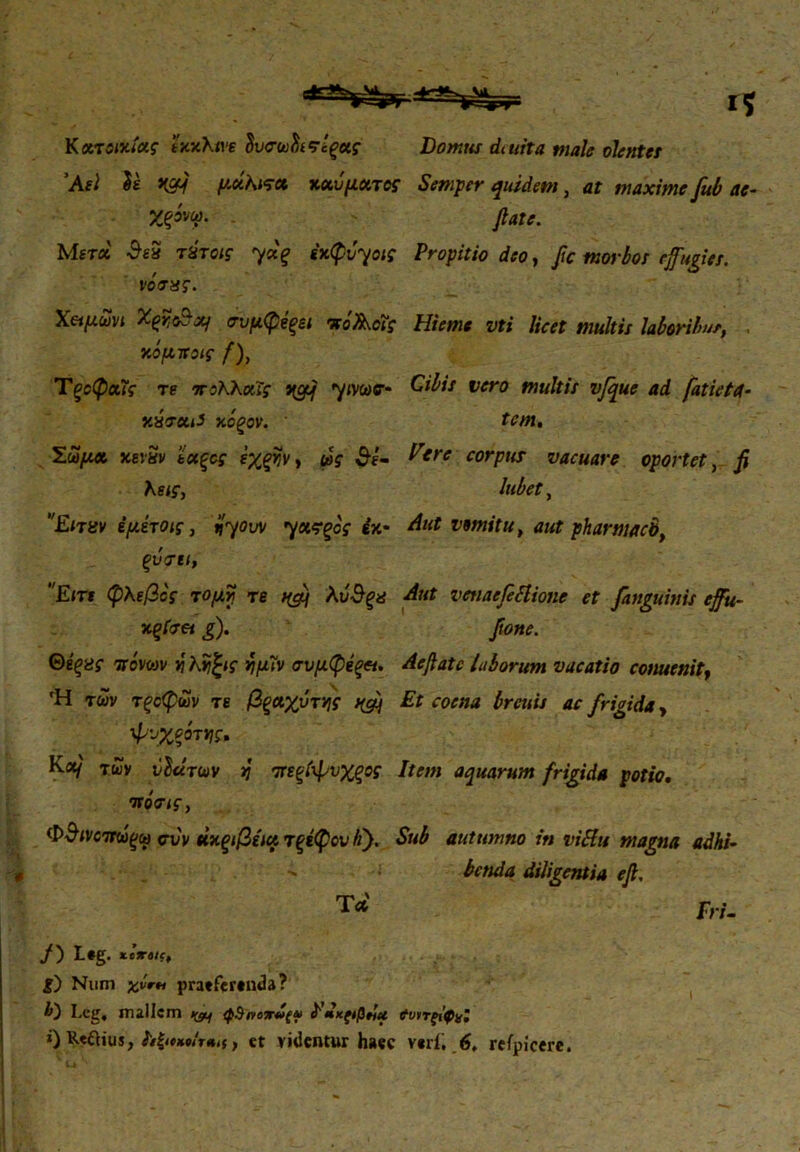 15
Κατοικίας ἔκκλινε δυσωδεστέρας
Ἀεὶ δὲ καὶ μάλιστα καύματος
χρόνῳ.
Μετὰ θεοῦ τούτοις γὰρ ἐκφύγοις
νόσους.
Χειμῶνι χρῆσθαι συμφέρει πολλοῖς
κόμποις f),
Τροφαῖς τε πολλαῖς καὶ γινωσ-
κούσαις κόρον.
Σῶμα κενοῦν ἔαρος ἐχρῆν, ὡς θέ-
λεις,
Εἴτουν ἐμέτοις, ἤγουν γαστρὸς ἐκ-
ρύσει,
Εἴτε φλεβὸς τομῇ τε καὶ λύθρου
κρίσει g).
Θέρους πόνων ἡ λῆξις ἡμῖν συμφέρει.
Ἡ τῶν τροφῶν τε βραχύτης καὶ
ψυχρότης.
Καὶ τῶν ὑδάτων ἡ περίψυχρος
πόσις,
Φθινοπώρῳ σὺν ἀκριβείᾳ τρέφου h).
Τὰ
Domus deuita male olentes
Semper quidem, at maxime sub ae-
state.
Propitio deo, sic morbos effugies.
Hieme vti licet multis laboribus,
Cibis vero multis vsque ad satieta-
tem.
Vere corpus vacuare oportet, si
lubet,
Aut vomitu, aut pharmaco,
Aut venaesectione et sanguinis effu-
sione.
Aestate laborum vacatio conuenit,
Et coena breuis ac frigida,
Item aquarum frigida potio.
Sub autumno in victu magna adhi-
benda diligentia est.
Fri-
f) Leg. κόποις,
g) Num χύσει praeferenda?
h) Leg. mallem καὶ φθινοπώρῳ δ᾽ἀκριβείᾳ συντρέφου;
i) Rectius, δεξιοκοίταις, et videntur haec vers. 6. respicere.